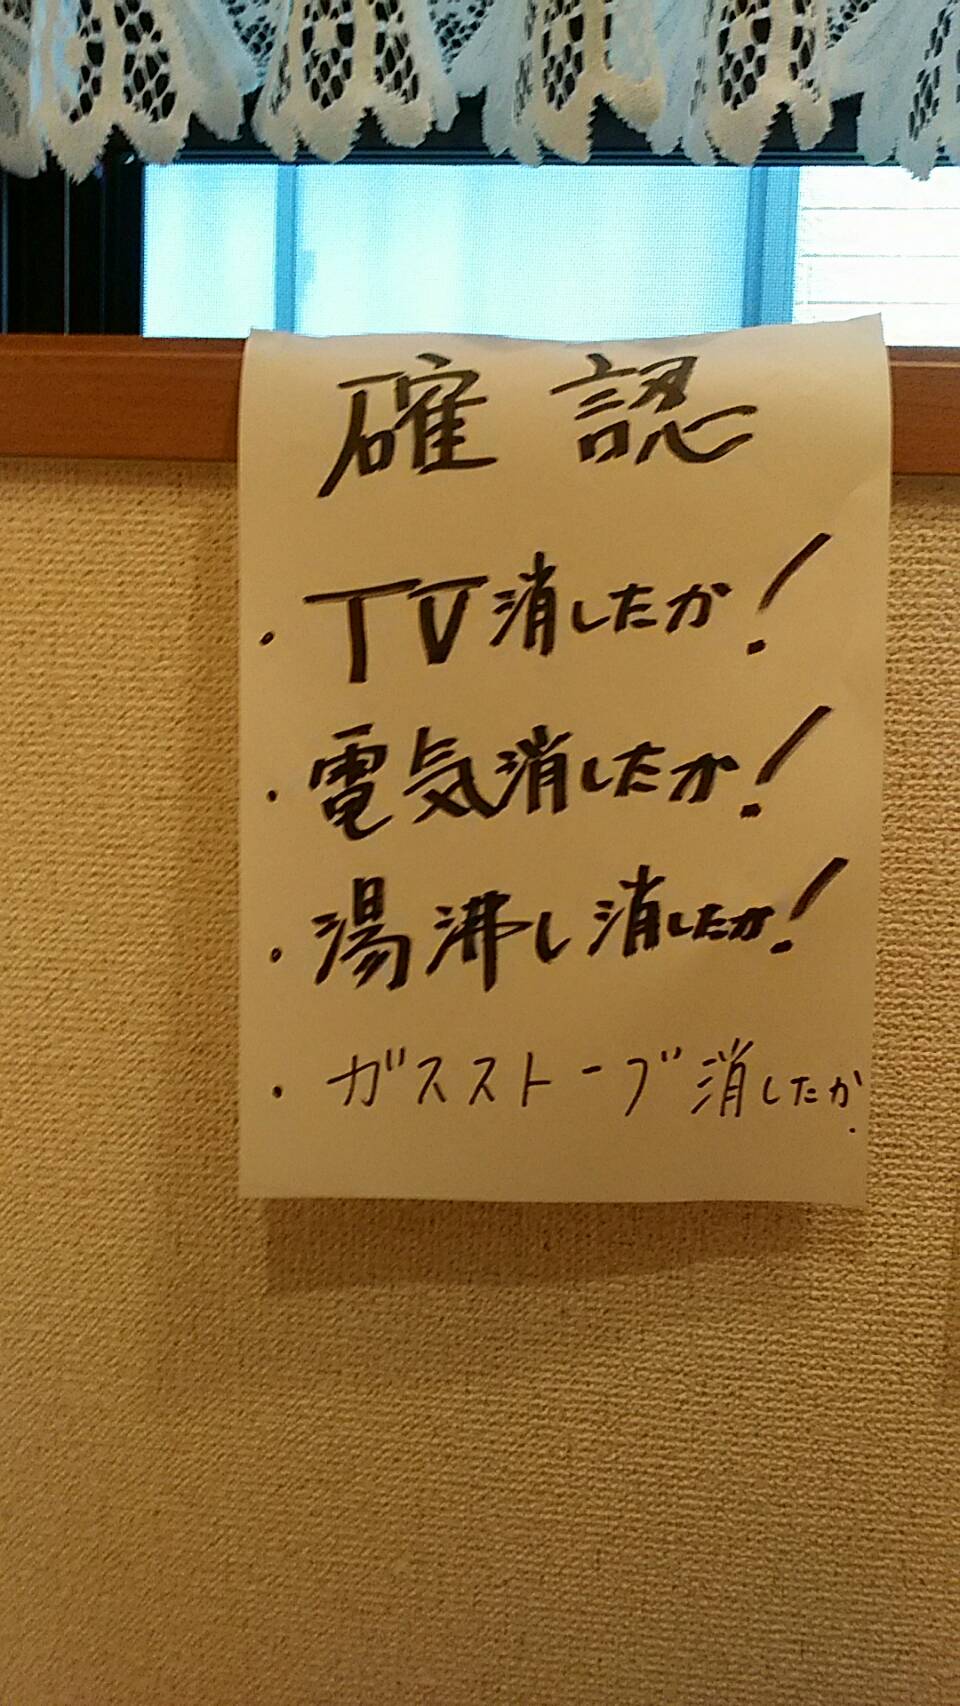 確認
・TV消したか!
・電気消したか!
・湯沸し消したか!
・ガスストーブ消したか.